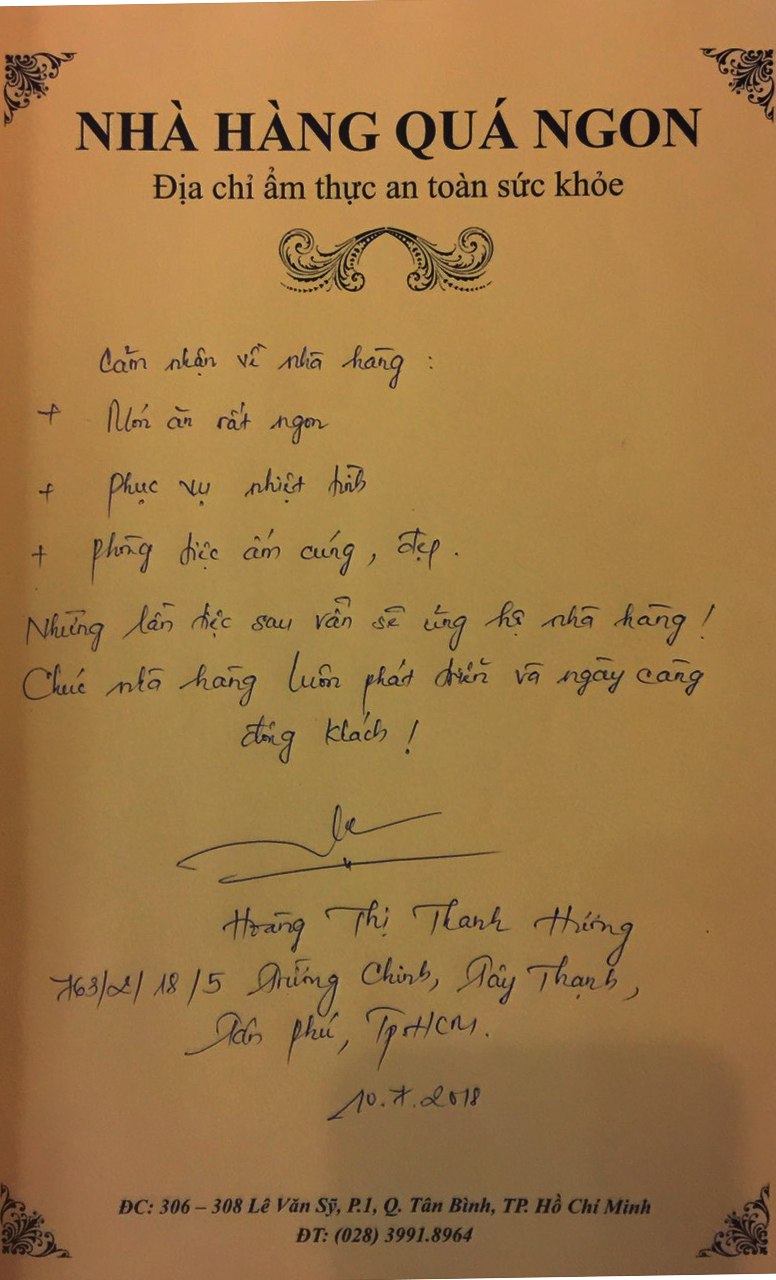 NHÀ HÀNG QUÁ NGON
Địa chỉ ẩm thực an toàn sức khỏe
Cảm nhận về nhà hàng :
+ Món ăn rất ngon
+ Phục vụ nhiệt tình
+ Phòng tiệc ấm cúng, đẹp.
Những lần tiệc sau vẫn sẽ ủng hộ nhà hàng !
Chúc nhà hàng luôn phát triển và ngày càng
đông khách !
Hoàng Thị Thanh Hương
763/2/18/5 Trường Chinh, Tây Thạnh,
Tân Phú, TpHCM.
10.7.2018
ĐC: 306 – 308 Lê Văn Sỹ, P.1, Q. Tân Bình, TP. Hồ Chí Minh
ĐT: (028) 3991.8964